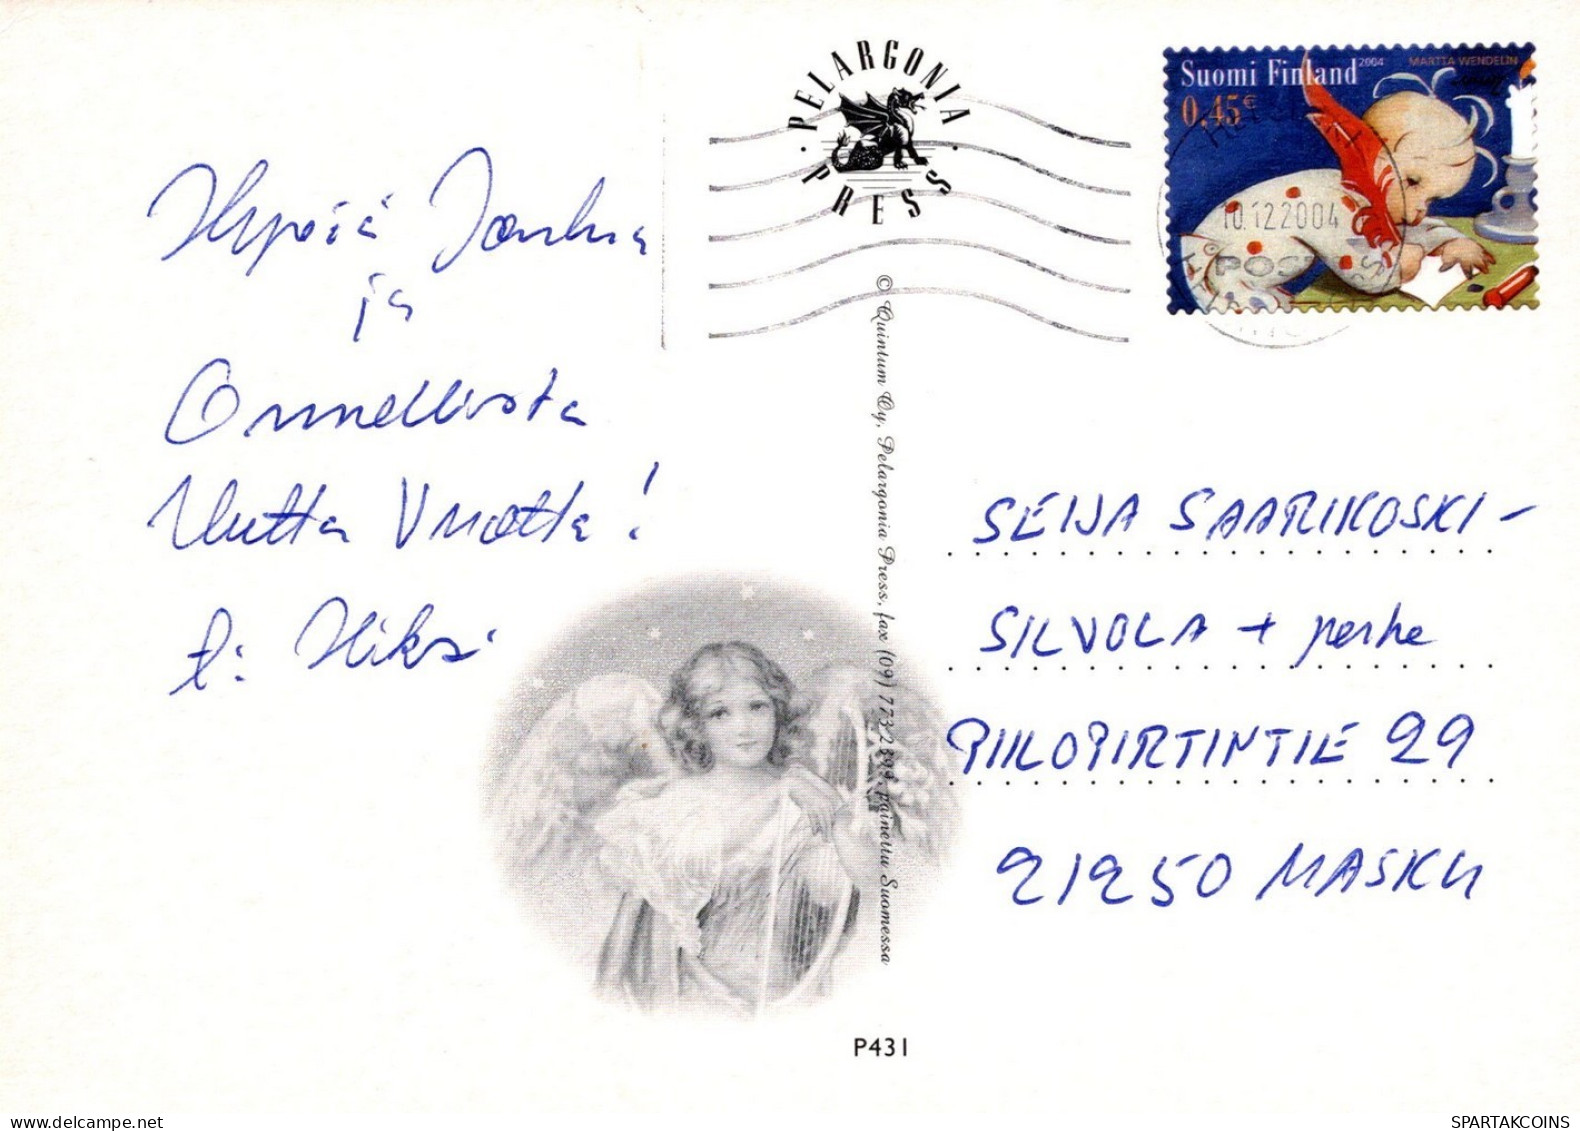 Hyvää Joulua
ja
Onnellista
Uutta Vuotta!
t: Hiksi
PELARGONIA
PRESS
Suomi Finland 2004
MARTTA WENDELIN
0,45€
10.12.2004
POSTI
© Quintum Oy, Pelargonia Press, fax (09) 7732899, painettu Suomessa
SEIJA SAARIKOSKI-
SILVOLA + perhe
PIILOPIRTINTIE 29
21250 MASKU
P431
SPARTAKCOINS
www.delcampe.net